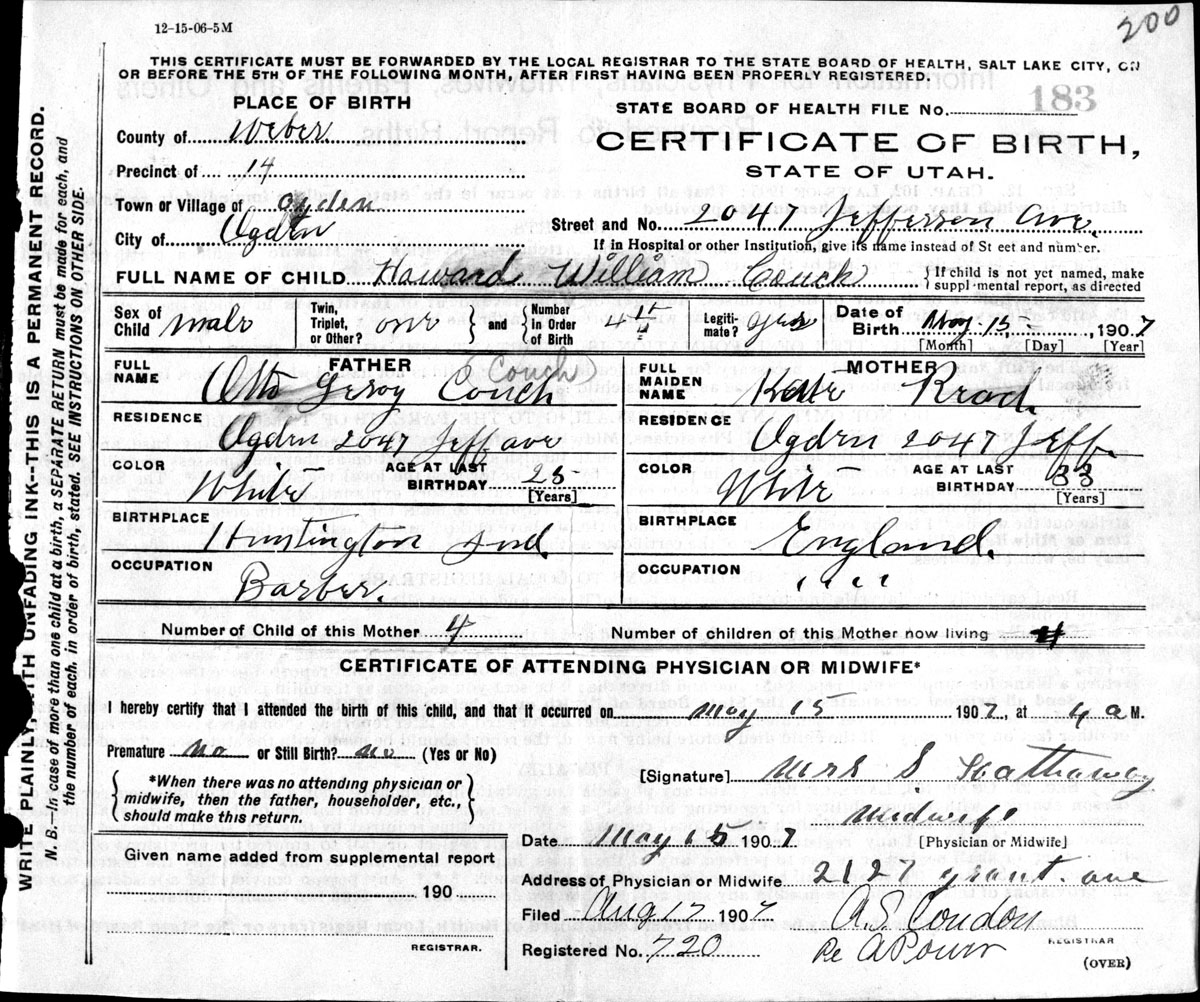 12-15-06-5M
200
THIS CERTIFICATE MUST BE FORWARDED BY THE LOCAL REGISTRAR TO THE STATE BOARD OF HEALTH, SALT LAKE CITY, ON
OR BEFORE THE 5TH OF THE FOLLOWING MONTH, AFTER FIRST HAVING BEEN PROPERLY REGISTERED.
WRITE PLAINLY WITH UNFADING INK--THIS IS A PERMANENT RECORD.
N. B.--In case of more than one child at a birth, a SEPARATE RETURN must be made for each, and
the number of each, in order of birth, stated. SEE INSTRUCTIONS ON OTHER SIDE.
PLACE OF BIRTH
County of Weber
Precinct of 14
Town or Village of Ogden
City of Ogden
STATE BOARD OF HEALTH FILE No. 183
CERTIFICATE OF BIRTH,
STATE OF UTAH.
Street and No. 2047 Jefferson Ave.
If in Hospital or other Institution, give its name instead of St eet and number.
FULL NAME OF CHILD Howard William Couch
If child is not yet named, make
suppl mental report, as directed
Sex of Child male
Twin, Triplet, or Other? one
and Number in Order of Birth 4
Legitimate? yes
Date of Birth May 15 1907
[Month] [Day] [Year]
FATHER
(Couch)
FULL NAME Otto Leroy Couch
RESIDENCE
Ogden 2047 Jeff ave
COLOR White
AGE AT LAST BIRTHDAY 28
[Years]
BIRTHPLACE
Huntington Ind.
OCCUPATION
Barber.
MOTHER
FULL MAIDEN NAME Kate
RESIDENCE
Ogden 2047 Jeff.
COLOR White
AGE AT LAST BIRTHDAY 33
[Years]
BIRTHPLACE
England.
OCCUPATION
Number of Child of this Mother 4
Number of children of this Mother now living 4
CERTIFICATE OF ATTENDING PHYSICIAN OR MIDWIFE*
I hereby certify that I attended the birth of this child, and that it occurred on May 15 1907, at 4 a M.
Premature no or Still Birth? no (Yes or No)
*When there was no attending physician or
midwife, then the father, householder, etc.,
should make this return.
[Signature] Mrs S Hathaway
midwife
[Physician or Midwife]
Date May 15 1907
Given name added from supplemental report
190
REGISTRAR.
Address of Physician or Midwife 2127 grant. ave
Filed Aug 17 1907
A.S. Condon
Registered No. 720
REGISTRAR
(OVER)